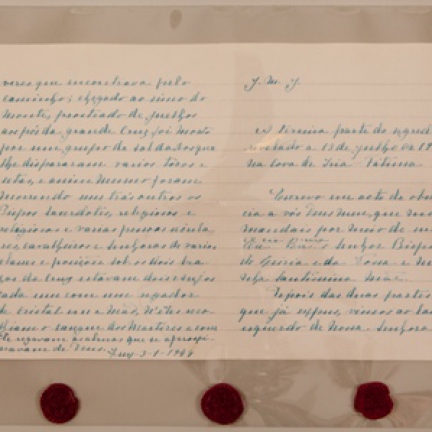 veres que encontrava pelo
caminho; chegado ao simo do
monte, prostrado de juelhos
aos pés da grande Cruz foi morto
por um grupo de soldados que
lhe dispararam varios tiros e
setas, e assim mesmo foram
morrendo uns trás outros os
Bispos Sacerdotes, religiosos e
religiosas e varias pessoas secula
res, cavalheiros e senhoras de varias
classes e posições. Sob os dois bra
ços da Cruz estavam dois Anjos
cada um com um regador
de cristal em a mão, n'êles reco
lhiam o sangue dos Martires e com
êle regavam as almas que se aproxi
mavam de Deus.
Tuy-3-1-1944
J. M. J.
A terceira parte do segredo
revelado a 13 de julho de 19
na Cova de Iria-Fátima.
Escrevo em acto de obe
ciência a vós Deus meu, que mo
mandais por meio de
Ex.cia Rev.ma o Senhor Bispo
de Leiria e da Vossa e
Santissima Mãe.
Depois das duas partes
que já expus, vimos ao la
esquerdo de Nossa Senhora